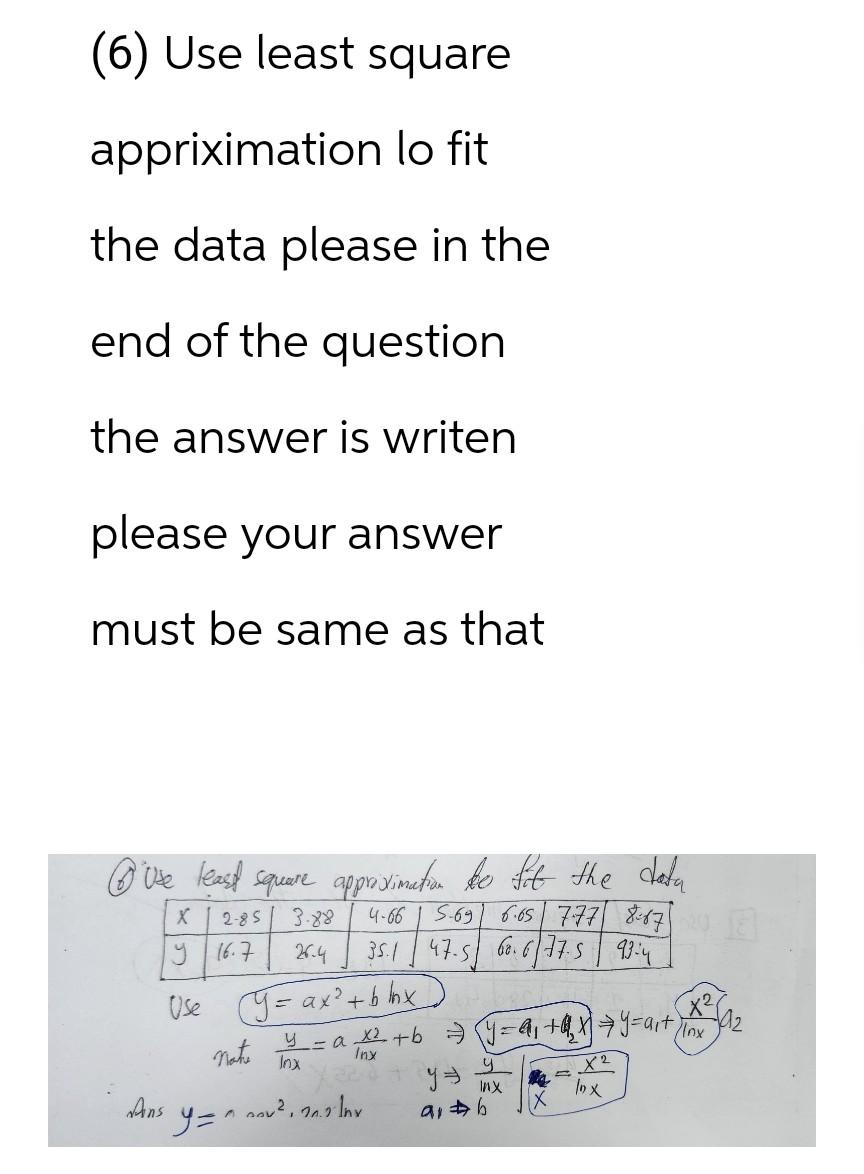 (6) Use least square
appriximation lo fit
the data please in the
end of the question
the answer is writen
please your answer
must be same as that
⑥ Use least square approximation to fit the data
x | 2.85 | 3.88 | 4.66 | 5.69 | 6.65 | 7.77 | 8.67
y | 16.7 | 26.4 | 35.1 | 47.5 | 60.6 | 77.5 | 93.4
Use y = ax² + b lnx
note y/lnx = a x²/lnx + b ⇒ y = a₁ + a₂x ⇒ y = a₁ + x²/lnx a₂
y ⇒ y/lnx | x = x²/lnx
a₁ ⇒ b
Ans y =